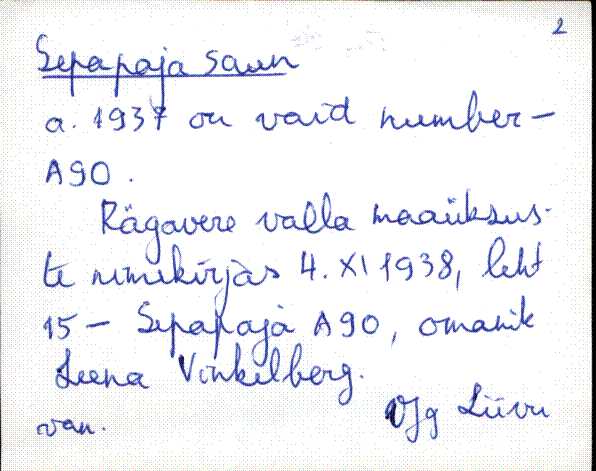 2
Sepapaja saun
a. 1937 on vaid number-
A90.
Rägavere valla maaüksus-
te nimekirjas 4. XI 1938, leht
15 - Sepapaja A90, omanik
Leena Vinkelberg.
VJg Liivu
van.